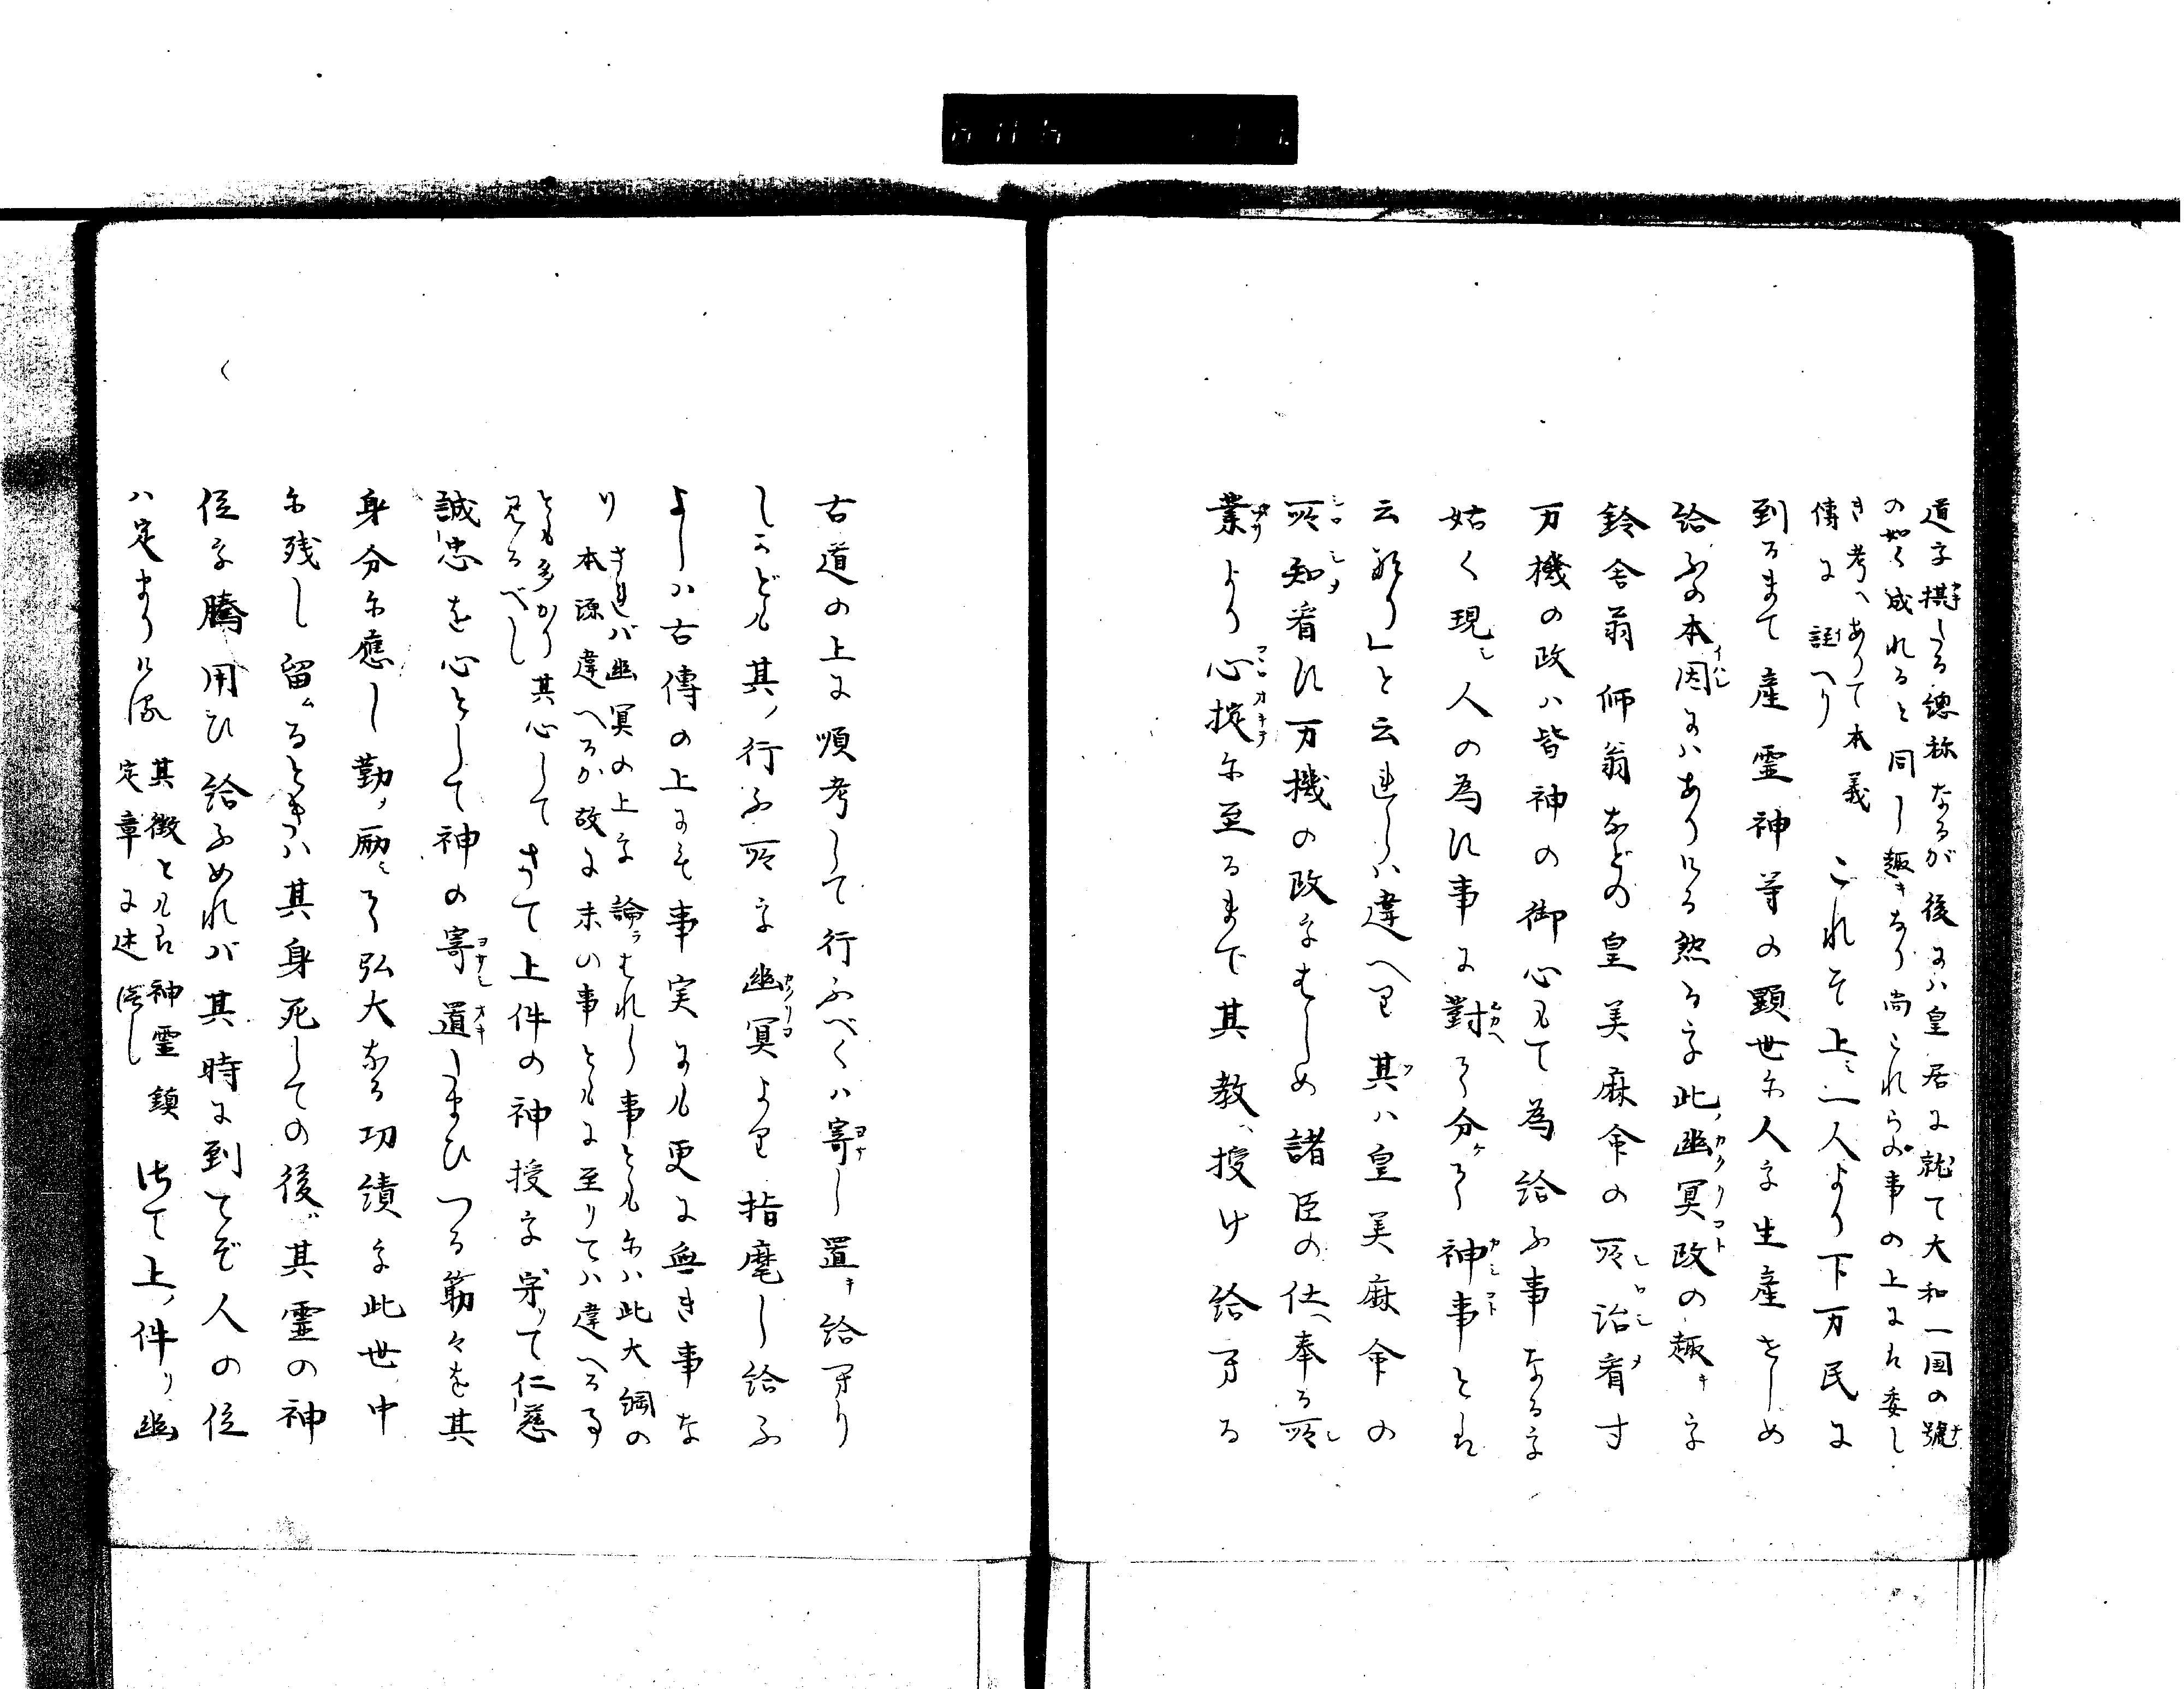 道を棋たる總称なるが後にハ皇居に就て大和一国の號
の如く成れると同し趣キなり尚これらの事の上にハ委し
き考へありて本義
傳に註へり これそ上ミ一人より下万民に
到るまて産霊神等の顕世に人を生産せしめ
給ふの本因にハありける然るを此ノ幽冥政の趣キを
鈴舎翁師翁などの皇美麻命の所治看す
万機の政ハ皆神の御心もて為給ふ事なるを
姑く現シ人の為に事に對へて分ケて神事とは
云
云るしハ違へり其ハ皇美麻命の
所知看に万機の政をはしめ諸臣の仕へ奉る所
業より心掟に至るまで其教ヘ授け給ける
古道の上に順考して行ふべくハ寄し置キ給けり
しかども其ノ行ふ所を幽冥より指麾し給ふ
よしハ古傳の上にも事実にも更に無き事な
り されバ幽冥の上を論ラはれし事ともにハ此大綱の
本源違へるか故に末の事ともに至りてハ違へる事
とも多かり其心して
見るべし さて上件の神授を守りて仁慈
誠忠を心として神の寄置しまひつる筋々を其
身分に應し勤ノ励ミて弘大なる功績を此世ノ中
に残し留ムるときハ其身死しての後ハ其霊の神
位を騰用ひ給ふめれバ其時に到てぞ人の位
ハ定まりける 其徴ともは神霊鎮
定章に述へし 偖て上ノ件リノ幽